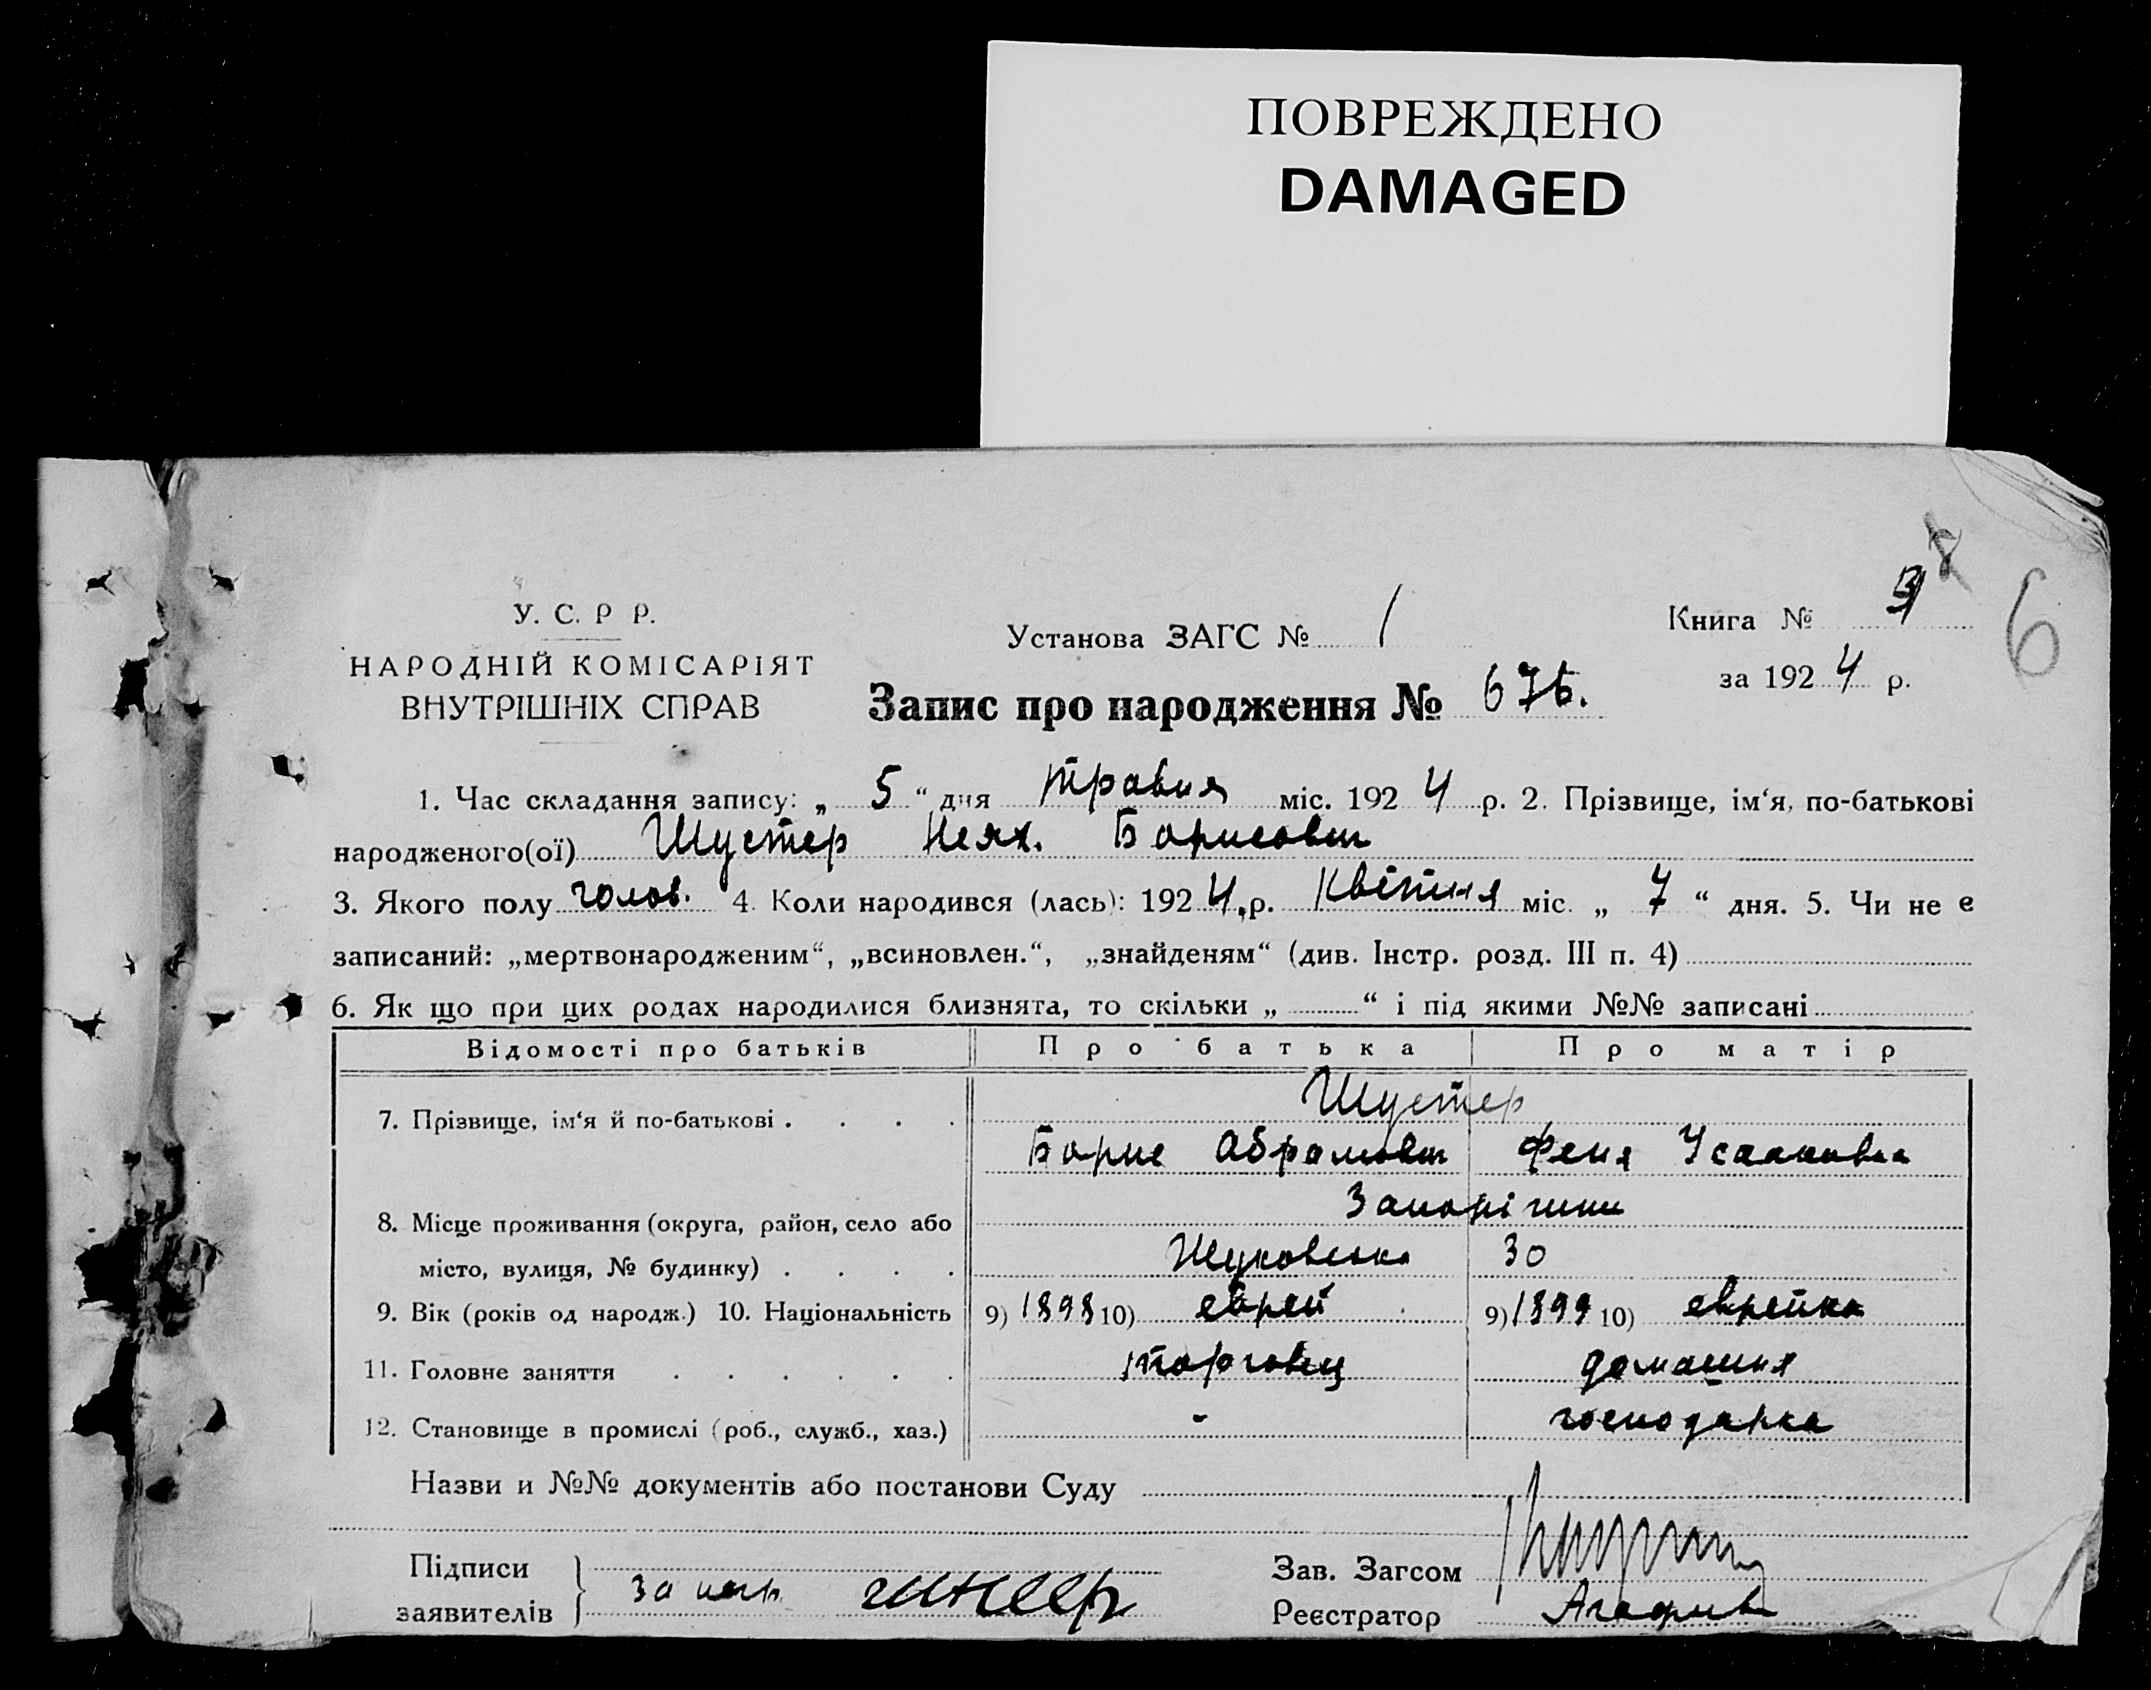 ПОВРЕЖДЕНО
DAMAGED
У. С. Р Р.
НАРОДНІЙ КОМІСАРІЯТ
ВНУТРІШНІХ СПРАВ
Установа ЗАГС № 1
Книга №
6
за 1924 р.
Запис про народження № 676.
1. Час складання запису: „ 5 “ дня травня міс. 1924 р. 2. Прізвище, ім‘я, по-батькові
народженого(ої) Шустер Борисович
3. Якого полу голов. 4. Коли народився (лась): 1924 р. Квітня міс. „ 7 “ дня. 5. Чи не є
записаний: „мертвонародженим“, „всиновлен.“, „знайденям“ (див. Інстр. розд. III п. 4)
6. Як що при цих родах народилися близнята, то скільки „ “ і під якими №№ записані
Відомості про батьків Про батька Про матір
7. Прізвище, ім‘я й по-батькові . . . . Шустер
Борис Абрамович Феня Усааковна
8. Місце проживання (округа, район, село або
місто, вулиця, № будинку) . . . . Жуковська 30
9. Вік (років од народж.) 10. Національність 9) 1898 10) еврей 9) 1899 10) еврейка
11. Головне заняття . . . . . . торговец домашня
12. Становище в промислі (роб., служб., хаз.) - господарка
Назви и №№ документів або постанови Суду
Підписи
заявителів
Зав. Загсом
Реєстратор